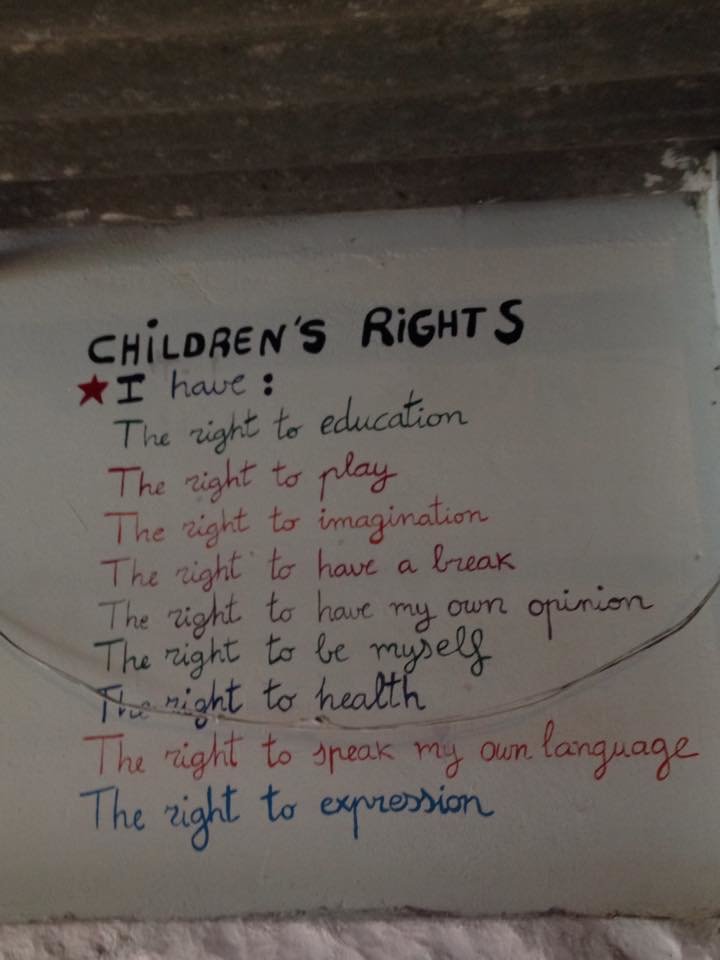 CHiLDREN'S RiGHTS
★ I have :
The right to education
The right to play
The right to imagination
The right to have a break
The right to have my own opinion
The right to be myself
The right to health
The right to speak my own language
The right to expression